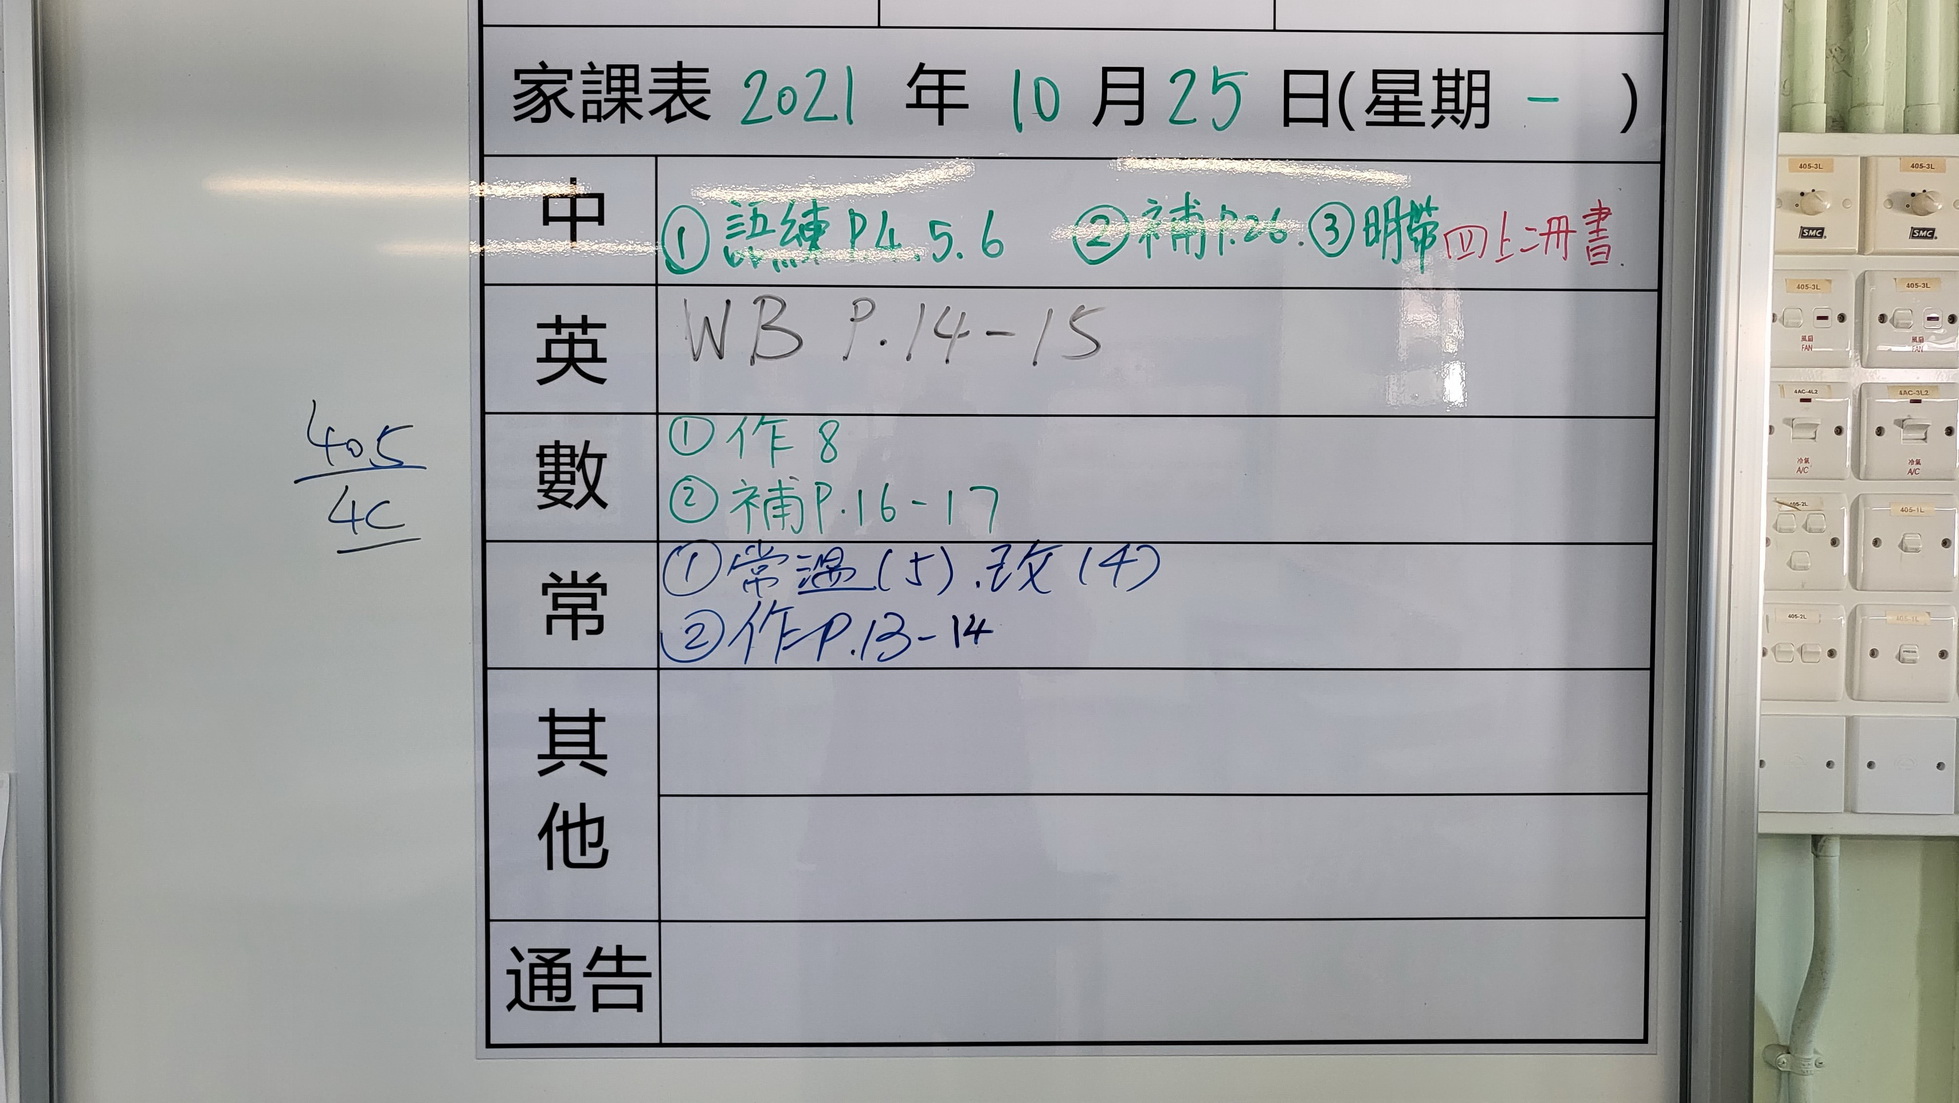 家課表 2021 年 10 月 25 日(星期 一 )
中 ① 語練 P4.5.6 ② 補P.26. ③ 明帶四上二冊書.
英 WB P.14-15
數 ① 作 8
② 補P.16-17
常 ① 常溫(5).改(4)
② 作P.13-14
其他
通告
405
4C
405-3L 405-3L
SMC SMC
405-3L 405-3L
風扇 FAN
風扇 FAN
4AC-4L2 4AC-3L2
冷氣 A/C
冷氣 A/C
405-2L 405-1L
405-2L 405-1L